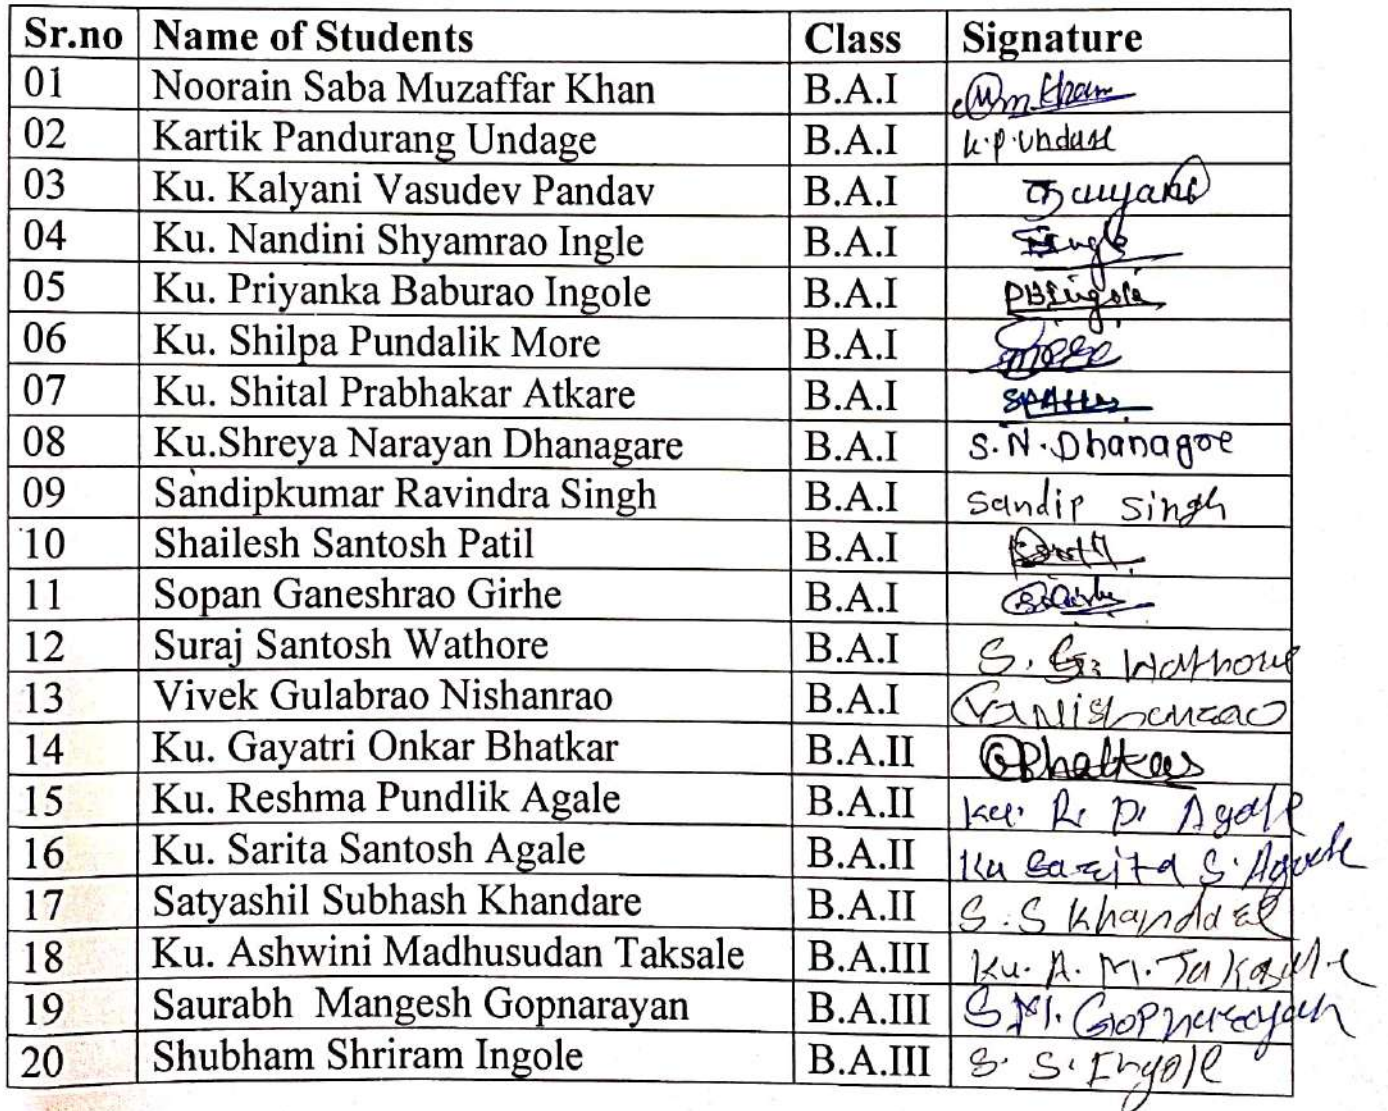 Sr.no Name of Students Class Signature
01 Noorain Saba Muzaffar Khan B.A.I
02 Kartik Pandurang Undage B.A.I k.p.undage
03 Ku. Kalyani Vasudev Pandav B.A.I
04 Ku. Nandini Shyamrao Ingle B.A.I
05 Ku. Priyanka Baburao Ingole B.A.I PBIngole
06 Ku. Shilpa Pundalik More B.A.I
07 Ku. Shital Prabhakar Atkare B.A.I
08 Ku.Shreya Narayan Dhanagare B.A.I S.N.Dhanagre
09 Sandipkumar Ravindra Singh B.A.I Sandip Singh
10 Shailesh Santosh Patil B.A.I
11 Sopan Ganeshrao Girhe B.A.I
12 Suraj Santosh Wathore B.A.I S. Wathore
13 Vivek Gulabrao Nishanrao B.A.I
14 Ku. Gayatri Onkar Bhatkar B.A.II
15 Ku. Reshma Pundlik Agale B.A.II Ku. R. P. Agale
16 Ku. Sarita Santosh Agale B.A.II Ku Sarita S. Agale
17 Satyashil Subhash Khandare B.A.II S.S Khandare
18 Ku. Ashwini Madhusudan Taksale B.A.III Ku. A. M. Takasale
19 Saurabh Mangesh Gopnarayan B.A.III S.M. Gopnarayan
20 Shubham Shriram Ingole B.A.III S. S. Ingole